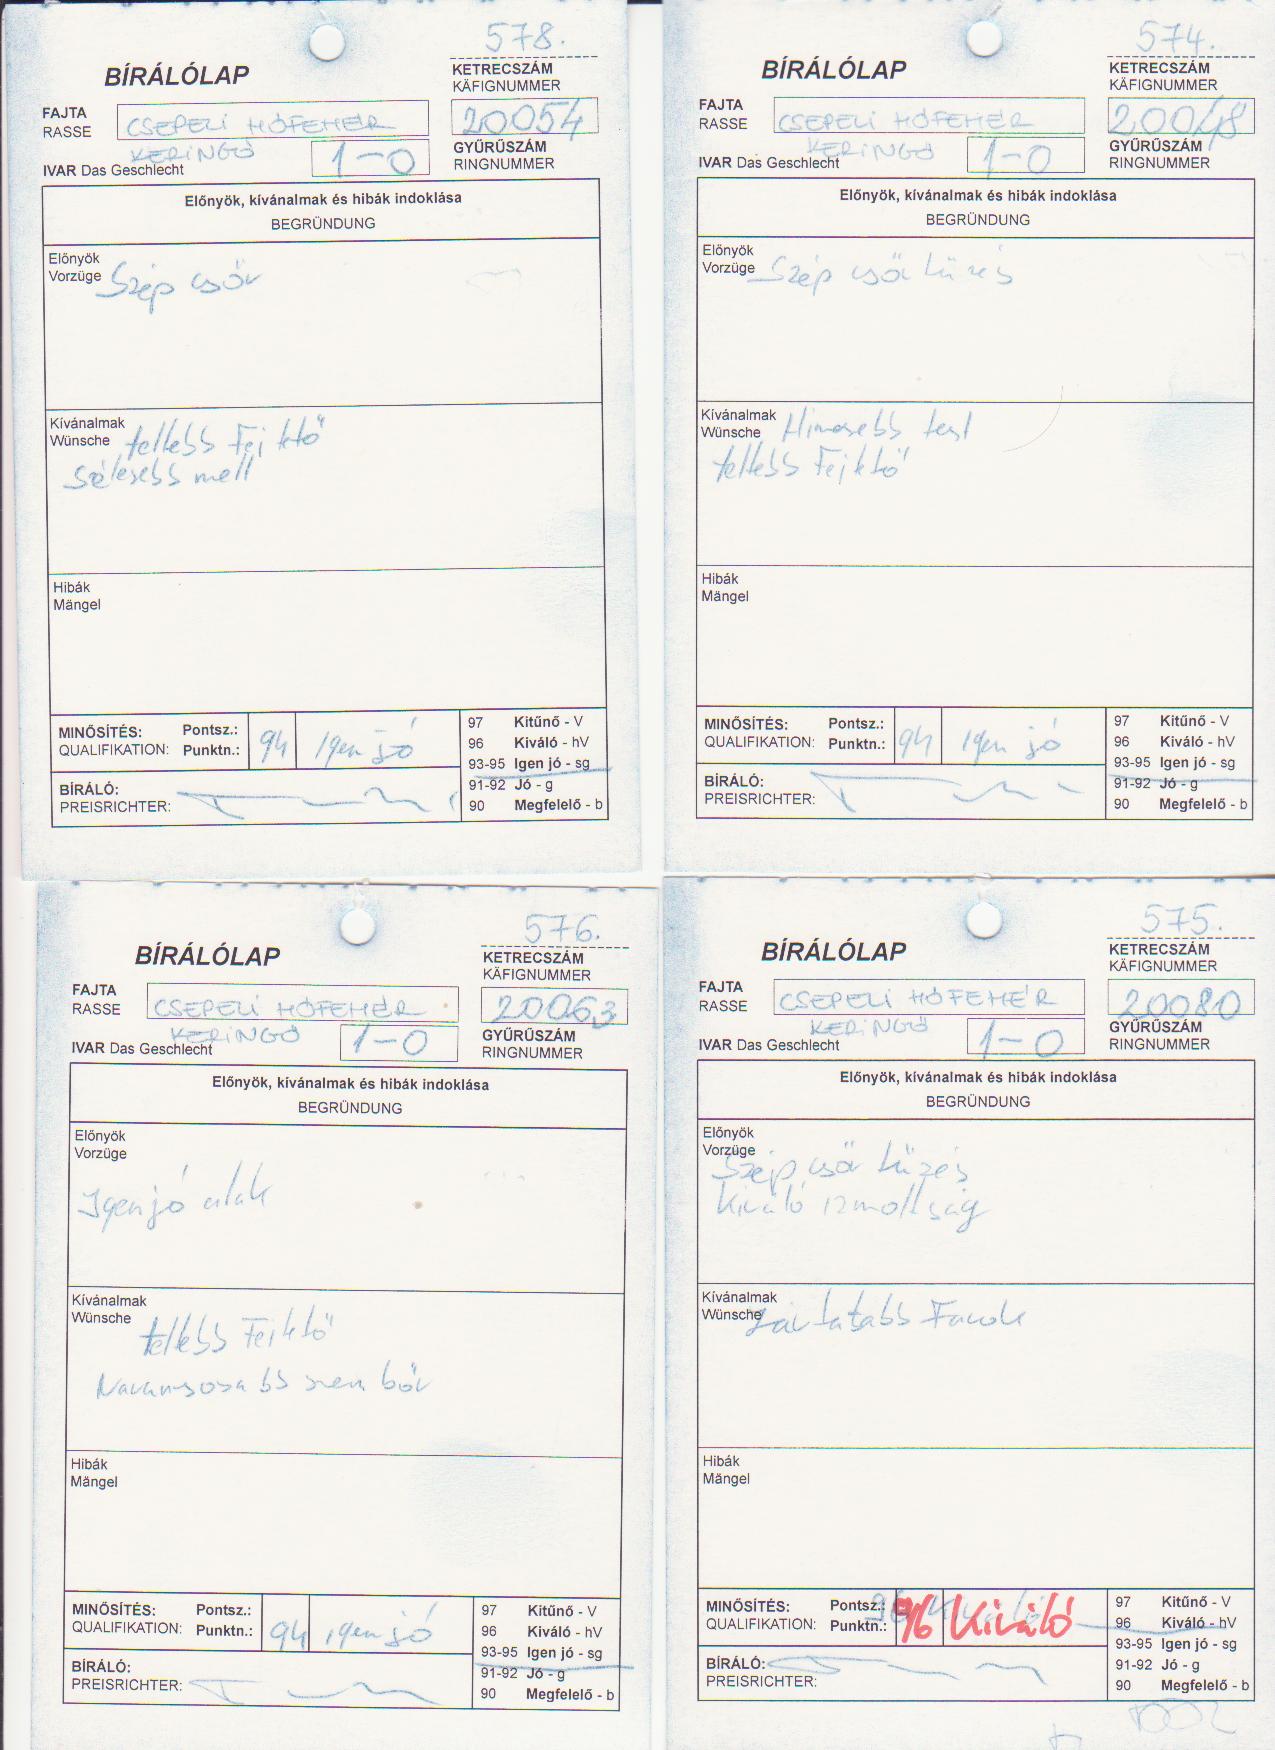 578.
BÍRÁLÓLAP
KETRECSZÁM
KÄFIGNUMMER
FAJTA
RASSE
CSEPELI HÓFEHÉR
KERINGŐ
20054
GYŰRŰSZÁM
RINGNUMMER
IVAR Das Geschlecht
1-0
Előnyök, kívánalmak és hibák indoklása
BEGRÜNDUNG
Előnyök
Vorzüge
Szép csőr
Kívánalmak
Wünsche
teltebb Fejtető
Szélesebb mell
Hibák
Mängel
MINŐSÍTÉS: Pontsz.:
QUALIFIKATION: Punktn.:
94 Igen jó
97 Kitűnő - V
96 Kiváló - hV
93-95 Igen jó - sg
91-92 Jó - g
90 Megfelelő - b
BÍRÁLÓ:
PREISRICHTER:
574.
BÍRÁLÓLAP
KETRECSZÁM
KÄFIGNUMMER
FAJTA
RASSE
CSEPELI HÓFEHÉR
KERINGŐ
20048
GYŰRŰSZÁM
RINGNUMMER
IVAR Das Geschlecht
1-0
Előnyök, kívánalmak és hibák indoklása
BEGRÜNDUNG
Előnyök
Vorzüge
Szép csőr tűzés
Kívánalmak
Wünsche
test
teltebb Fejtető
Hibák
Mängel
MINŐSÍTÉS: Pontsz.:
QUALIFIKATION: Punktn.:
94 Igen jó
97 Kitűnő - V
96 Kiváló - hV
93-95 Igen jó - sg
91-92 Jó - g
90 Megfelelő - b
BÍRÁLÓ:
PREISRICHTER:
576.
BÍRÁLÓLAP
KETRECSZÁM
KÄFIGNUMMER
FAJTA
RASSE
CSEPELI HÓFEHÉR
KERINGŐ
20063
GYŰRŰSZÁM
RINGNUMMER
IVAR Das Geschlecht
1-0
Előnyök, kívánalmak és hibák indoklása
BEGRÜNDUNG
Előnyök
Vorzüge
Igen jó alak
Kívánalmak
Wünsche
teltebb Fejtető
szem bőr
Hibák
Mängel
MINŐSÍTÉS: Pontsz.:
QUALIFIKATION: Punktn.:
94 igen jó
97 Kitűnő - V
96 Kiváló - hV
93-95 Igen jó - sg
91-92 Jó - g
90 Megfelelő - b
BÍRÁLÓ:
PREISRICHTER:
575.
BÍRÁLÓLAP
KETRECSZÁM
KÄFIGNUMMER
FAJTA
RASSE
CSEPELI HÓFEHÉR
KERINGŐ
20080
GYŰRŰSZÁM
RINGNUMMER
IVAR Das Geschlecht
1-0
Előnyök, kívánalmak és hibák indoklása
BEGRÜNDUNG
Előnyök
Vorzüge
Szép csőr tűzés
Kiváló izmoltság
Kívánalmak
Wünsche
Hibák
Mängel
MINŐSÍTÉS: Pontsz.:
QUALIFIKATION: Punktn.:
96 Kiváló
97 Kitűnő - V
96 Kiváló - hV
93-95 Igen jó - sg
91-92 Jó - g
90 Megfelelő - b
BÍRÁLÓ:
PREISRICHTER: